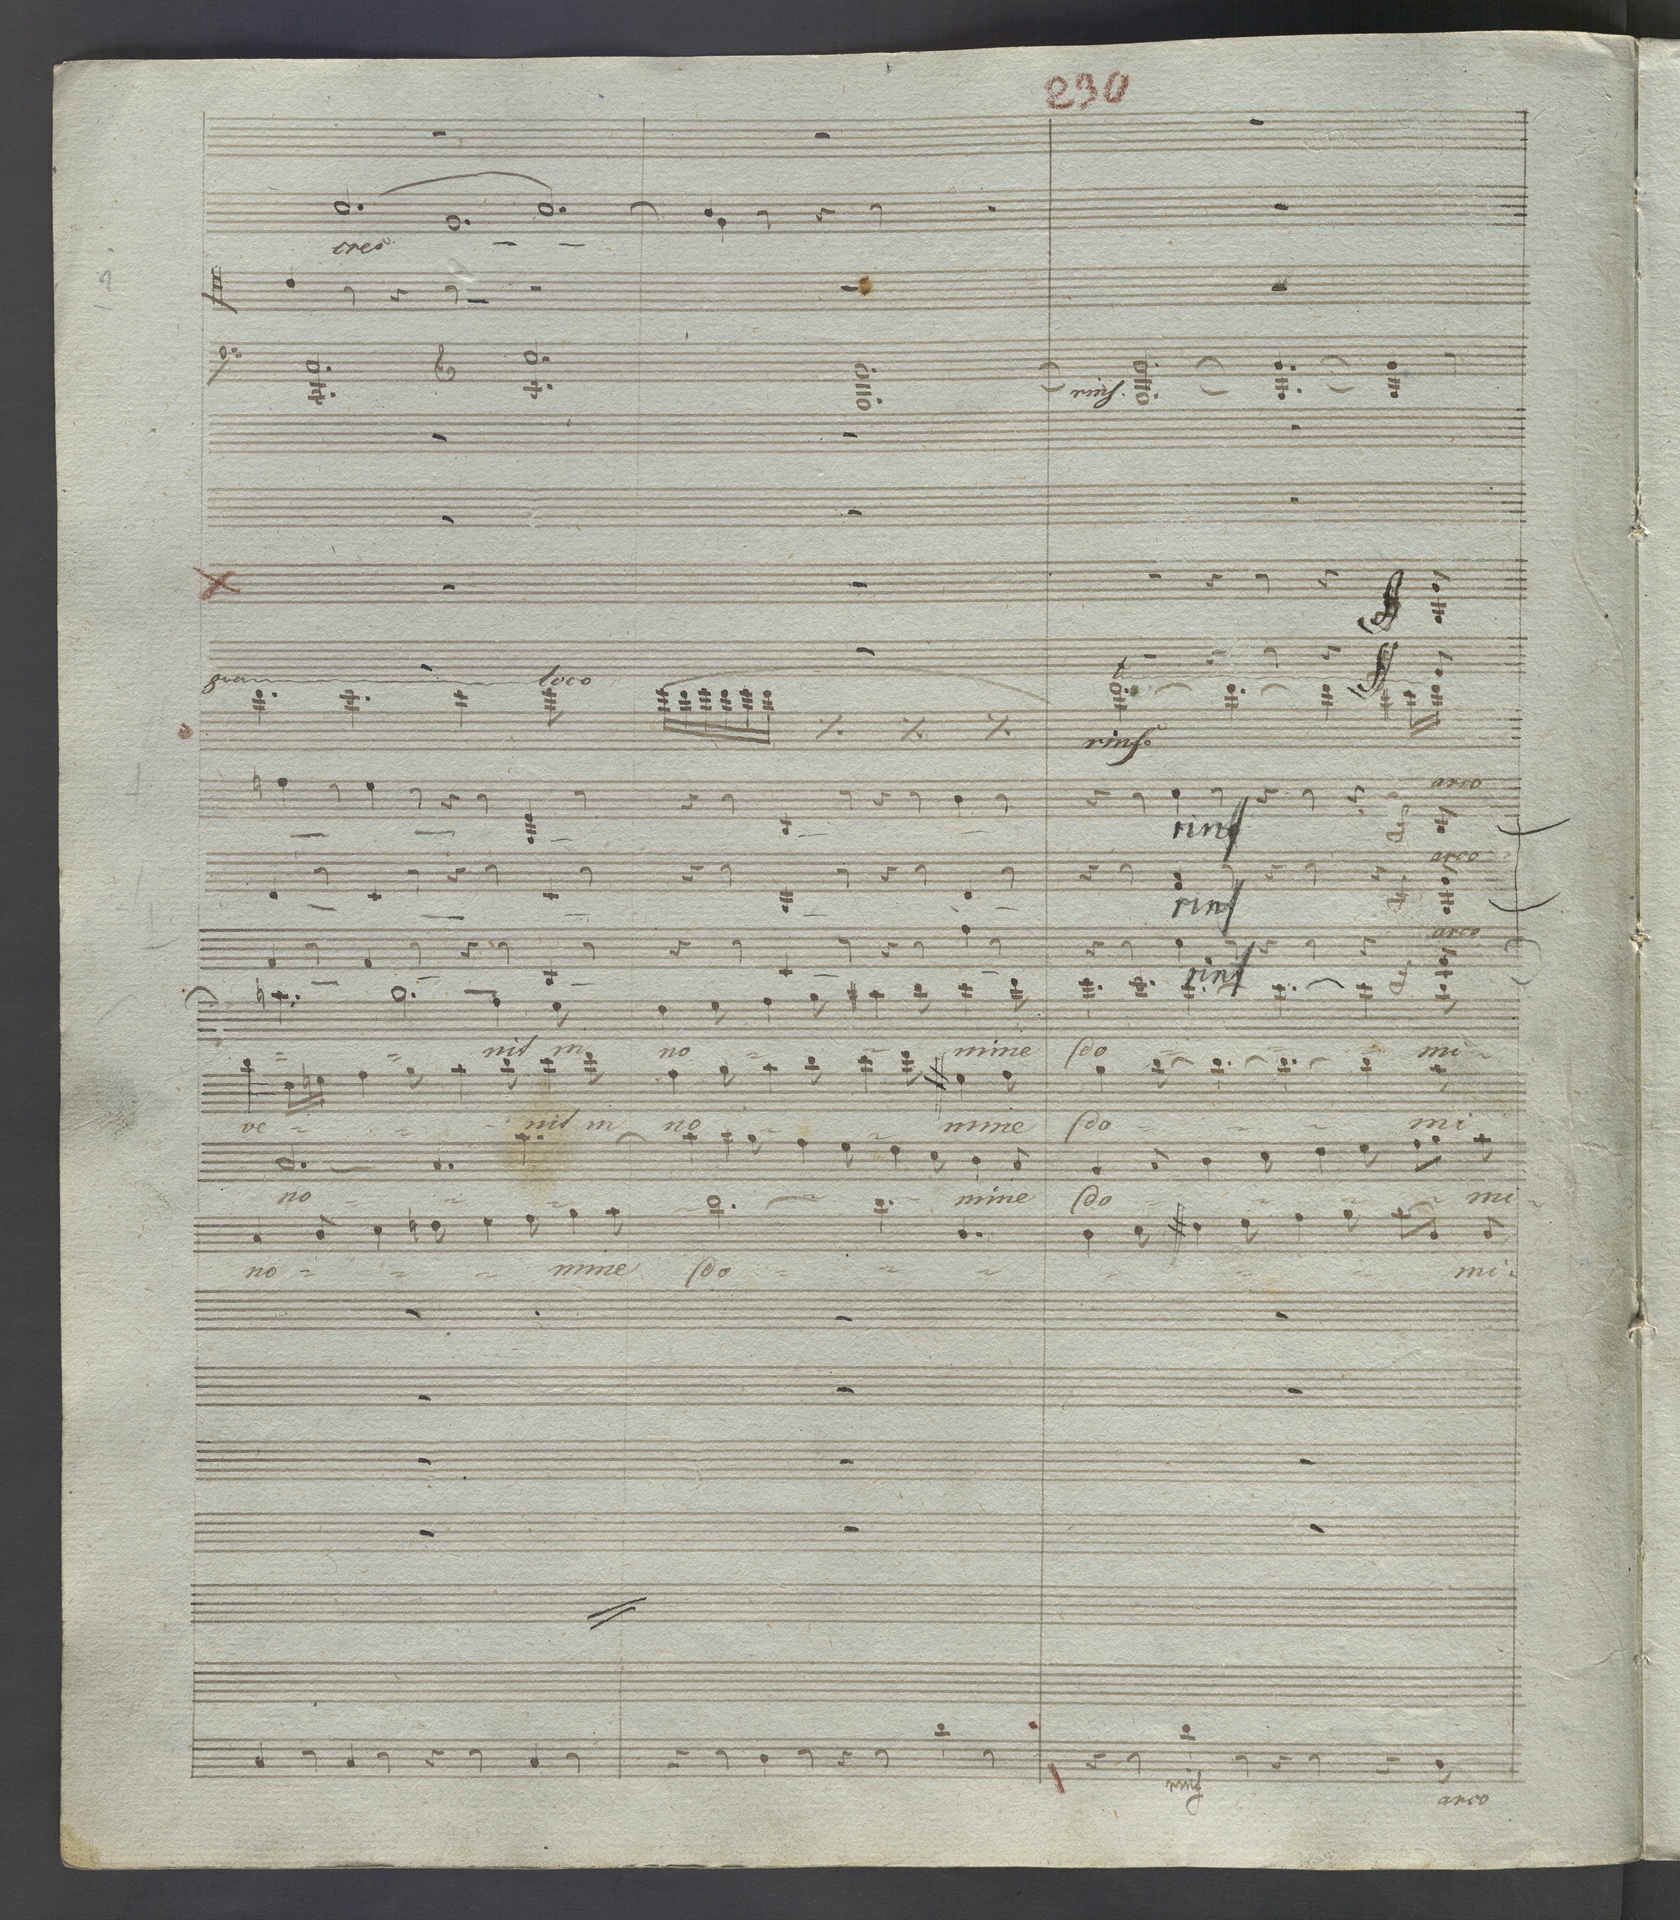 230
cres
rinf.
8va loco
rinf.
arco
rinf
arco
rinf
arco
rinf
nit in no mine do mi
ve nit in no mine do mi
no mine do mi
no mine do mi
rinf
arco